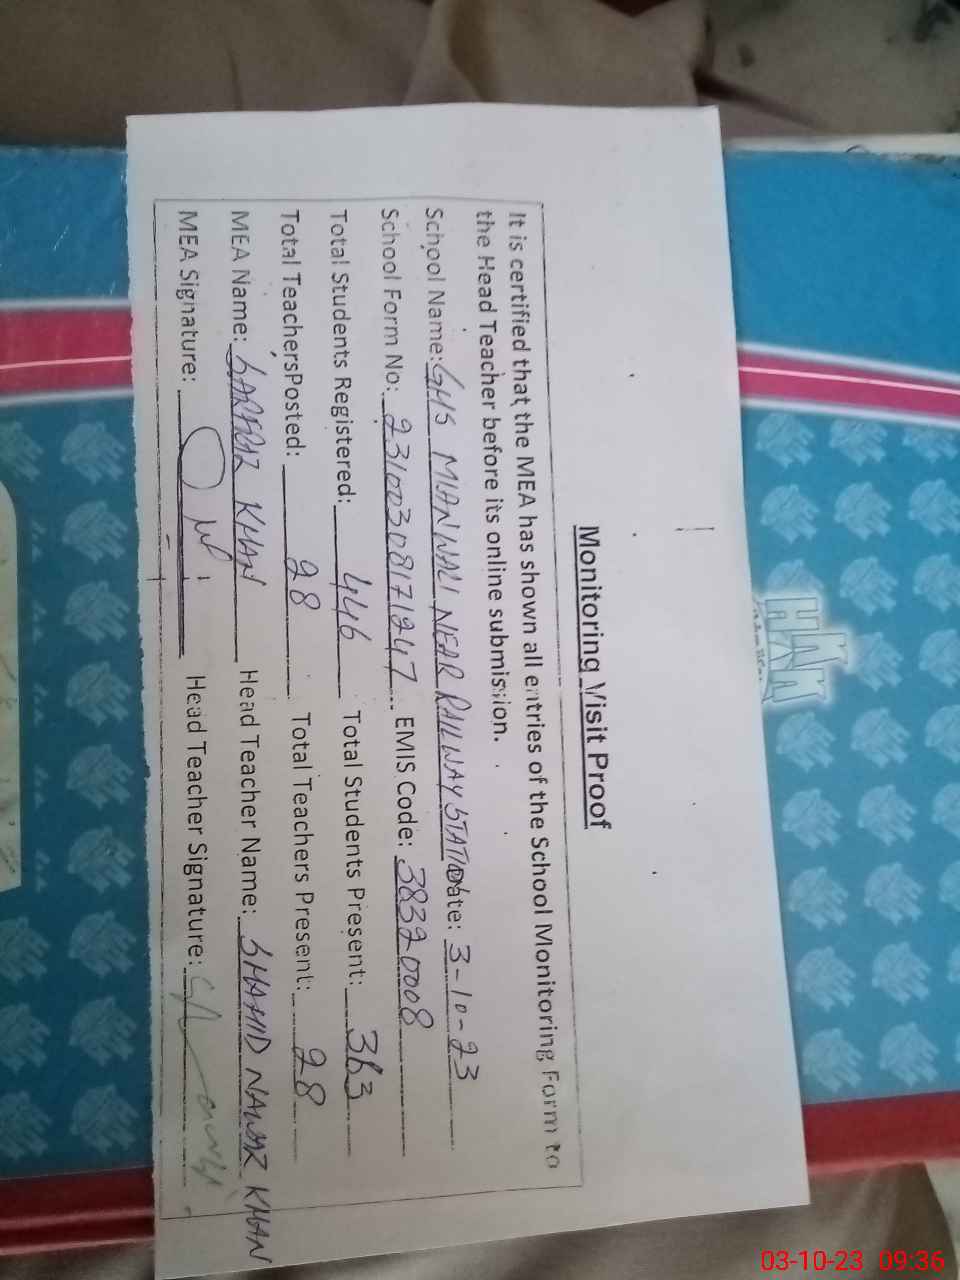 Monitoring Visit Proof
It is certified that the MEA has shown all entries of the School Monitoring Form to
the Head Teacher before its online submission.
School Name: GHS MIANWALI NEAR RAILWAY STATION Date: 3-10-23
School Form No: 23100308171247 EMIS Code: 38320008
Total Students Registered: 446 Total Students Present: 363
Total TeachersPosted: 28 Total Teachers Present: 28
MEA Name: SARFRAZ KHAN Head Teacher Name: SHAHID NAWAZ KHAN
MEA Signature: Head Teacher Signature:
03-10-23 09:36